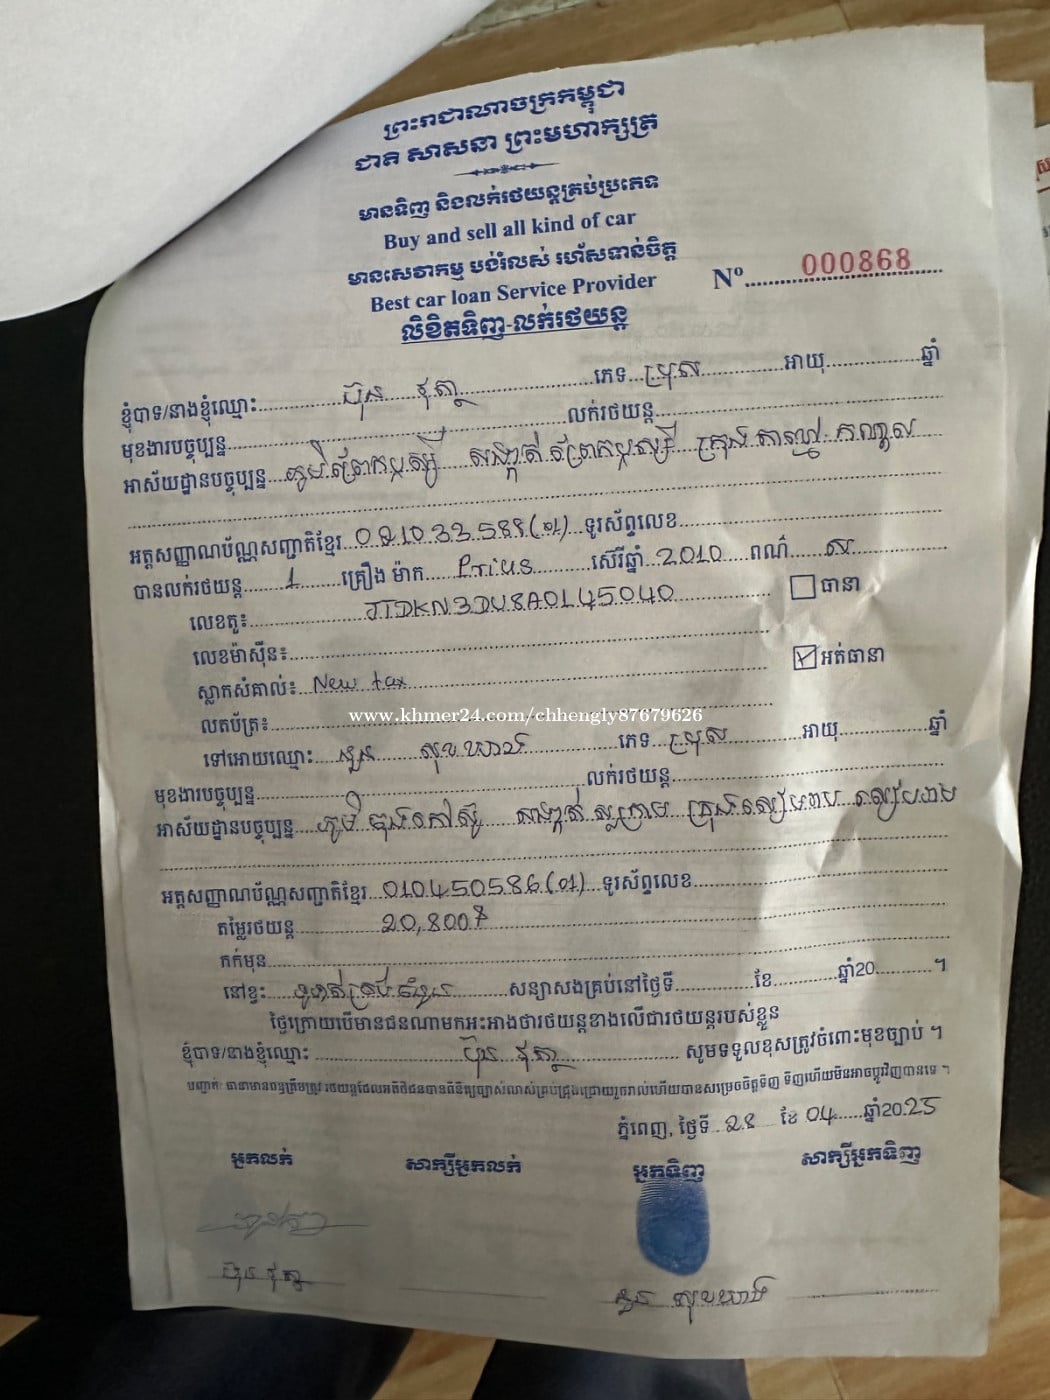 ព្រះរាជាណាចក្រកម្ពុជា
ជាតិ សាសនា ព្រះមហាក្សត្រ
មានទិញ និងលក់រថយន្តគ្រប់ប្រភេទ
Buy and sell all kind of car
មានសេវាកម្ម បង់រំលស់ រហ័សទាន់ចិត្ត
Best car loan Service Provider
Nº 000868
លិខិតទិញ-លក់រថយន្ត
ខ្ញុំបាទ/នាងខ្ញុំឈ្មោះ ប៊ុន វុត្ថា ភេទ ប្រុស អាយុ ឆ្នាំ
មុខងារបច្ចុប្បន្ន លក់រថយន្ត
អាស័យដ្ឋានបច្ចុប្បន្ន ភូមិ ព្រែកឫស្សី សង្កាត់ ព្រែកឫស្សី ក្រុង តាខ្មៅ កណ្តាល
អត្តសញ្ញាណប័ណ្ណសញ្ជាតិខ្មែរ (01) ទូរស័ព្ទលេខ
បានលក់រថយន្ត 1 គ្រឿង ម៉ាក Prius ស៊េរីឆ្នាំ 2010 ពណ៌ ស
លេខតួ៖ JTDKN3DU8A0145040 ធានា
លេខម៉ាស៊ីន៖
អត់ធានា
ស្លាកសំគាល់៖ New tax
លតប័ត្រ៖
www.khmer24.com/chhengly87679626
ទៅអោយឈ្មោះ សុខ ភេទ ប្រុស អាយុ ឆ្នាំ
មុខងារបច្ចុប្បន្ន លក់រថយន្ត
អាស័យដ្ឋានបច្ចុប្បន្ន ភូមិ សង្កាត់ ស្លក្រាម ក្រុង សៀមរាប សៀមរាប
អត្តសញ្ញាណប័ណ្ណសញ្ជាតិខ្មែរ 010450586(01) ទូរស័ព្ទលេខ
តម្លៃរថយន្ត 20,800$
កក់មុន
នៅខ្វះ ទូទាត់គ្រប់ចំនួន សន្យាសងគ្រប់នៅថ្ងៃទី ខែ ឆ្នាំ20 ។
ថ្ងៃក្រោយបើមានជនណាមកអះអាងថារថយន្តខាងលើជារថយន្តរបស់ខ្លួន
ខ្ញុំបាទ/នាងខ្ញុំឈ្មោះ ប៊ុន វុត្ថា សូមទទួលខុសត្រូវចំពោះមុខច្បាប់ ។
ភ្នំពេញ, ថ្ងៃទី 28 ខែ 04 ឆ្នាំ2025
អ្នកលក់ សាក្សីអ្នកលក់ អ្នកទិញ សាក្សីអ្នកទិញ
ប៊ុន វុត្ថា
សុខ